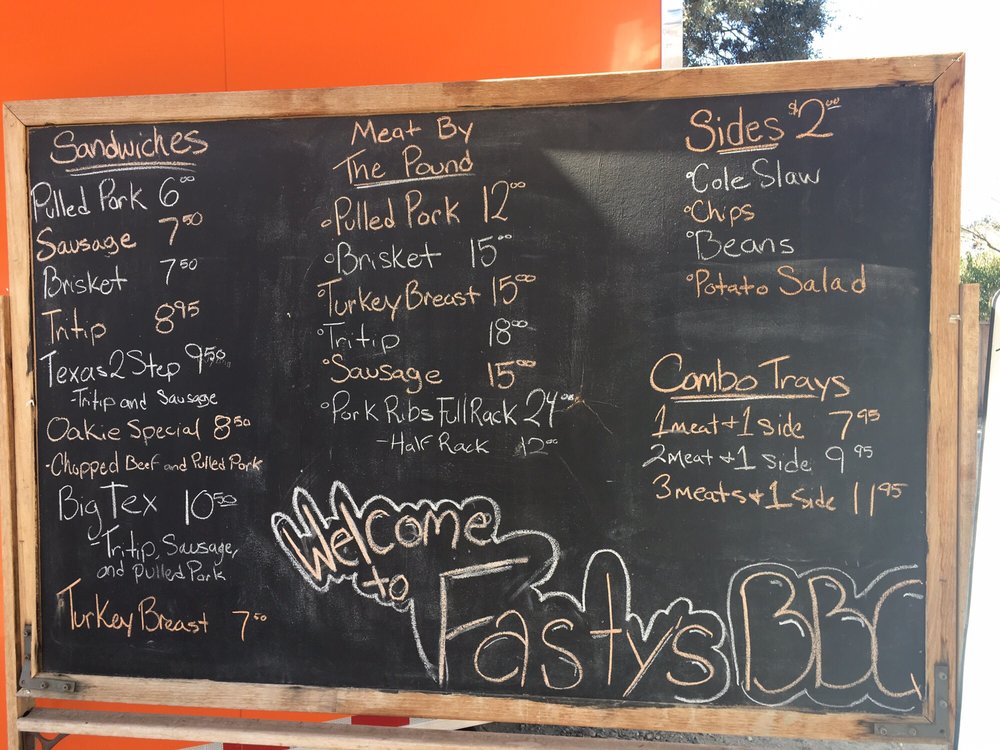 Sandwiches
Pulled Pork 6.00
Sausage 7.50
Brisket 7.50
Tritip 8.95
Texas 2 Step 9.50
-Tritip and Sausage
Oakie Special 8.50
-Chopped Beef and Pulled Pork
Big Tex 10.50
-Tritip, Sausage,
and Pulled Pork
Turkey Breast 7.50
Meat By
The Pound
•Pulled Pork 12.00
•Brisket 15.00
•Turkey Breast 15.00
•Tritip 18.00
•Sausage 15.00
•Pork Ribs Full Rack 24.00
-Half Rack 12.00
Sides $2.00
•Cole Slaw
•Chips
•Beans
•Potato Salad
Combo Trays
1 meat + 1 side 7.95
2 meat + 1 side 9.95
3 meats + 1 side 11.95
Welcome
to
Fasty's BBQ